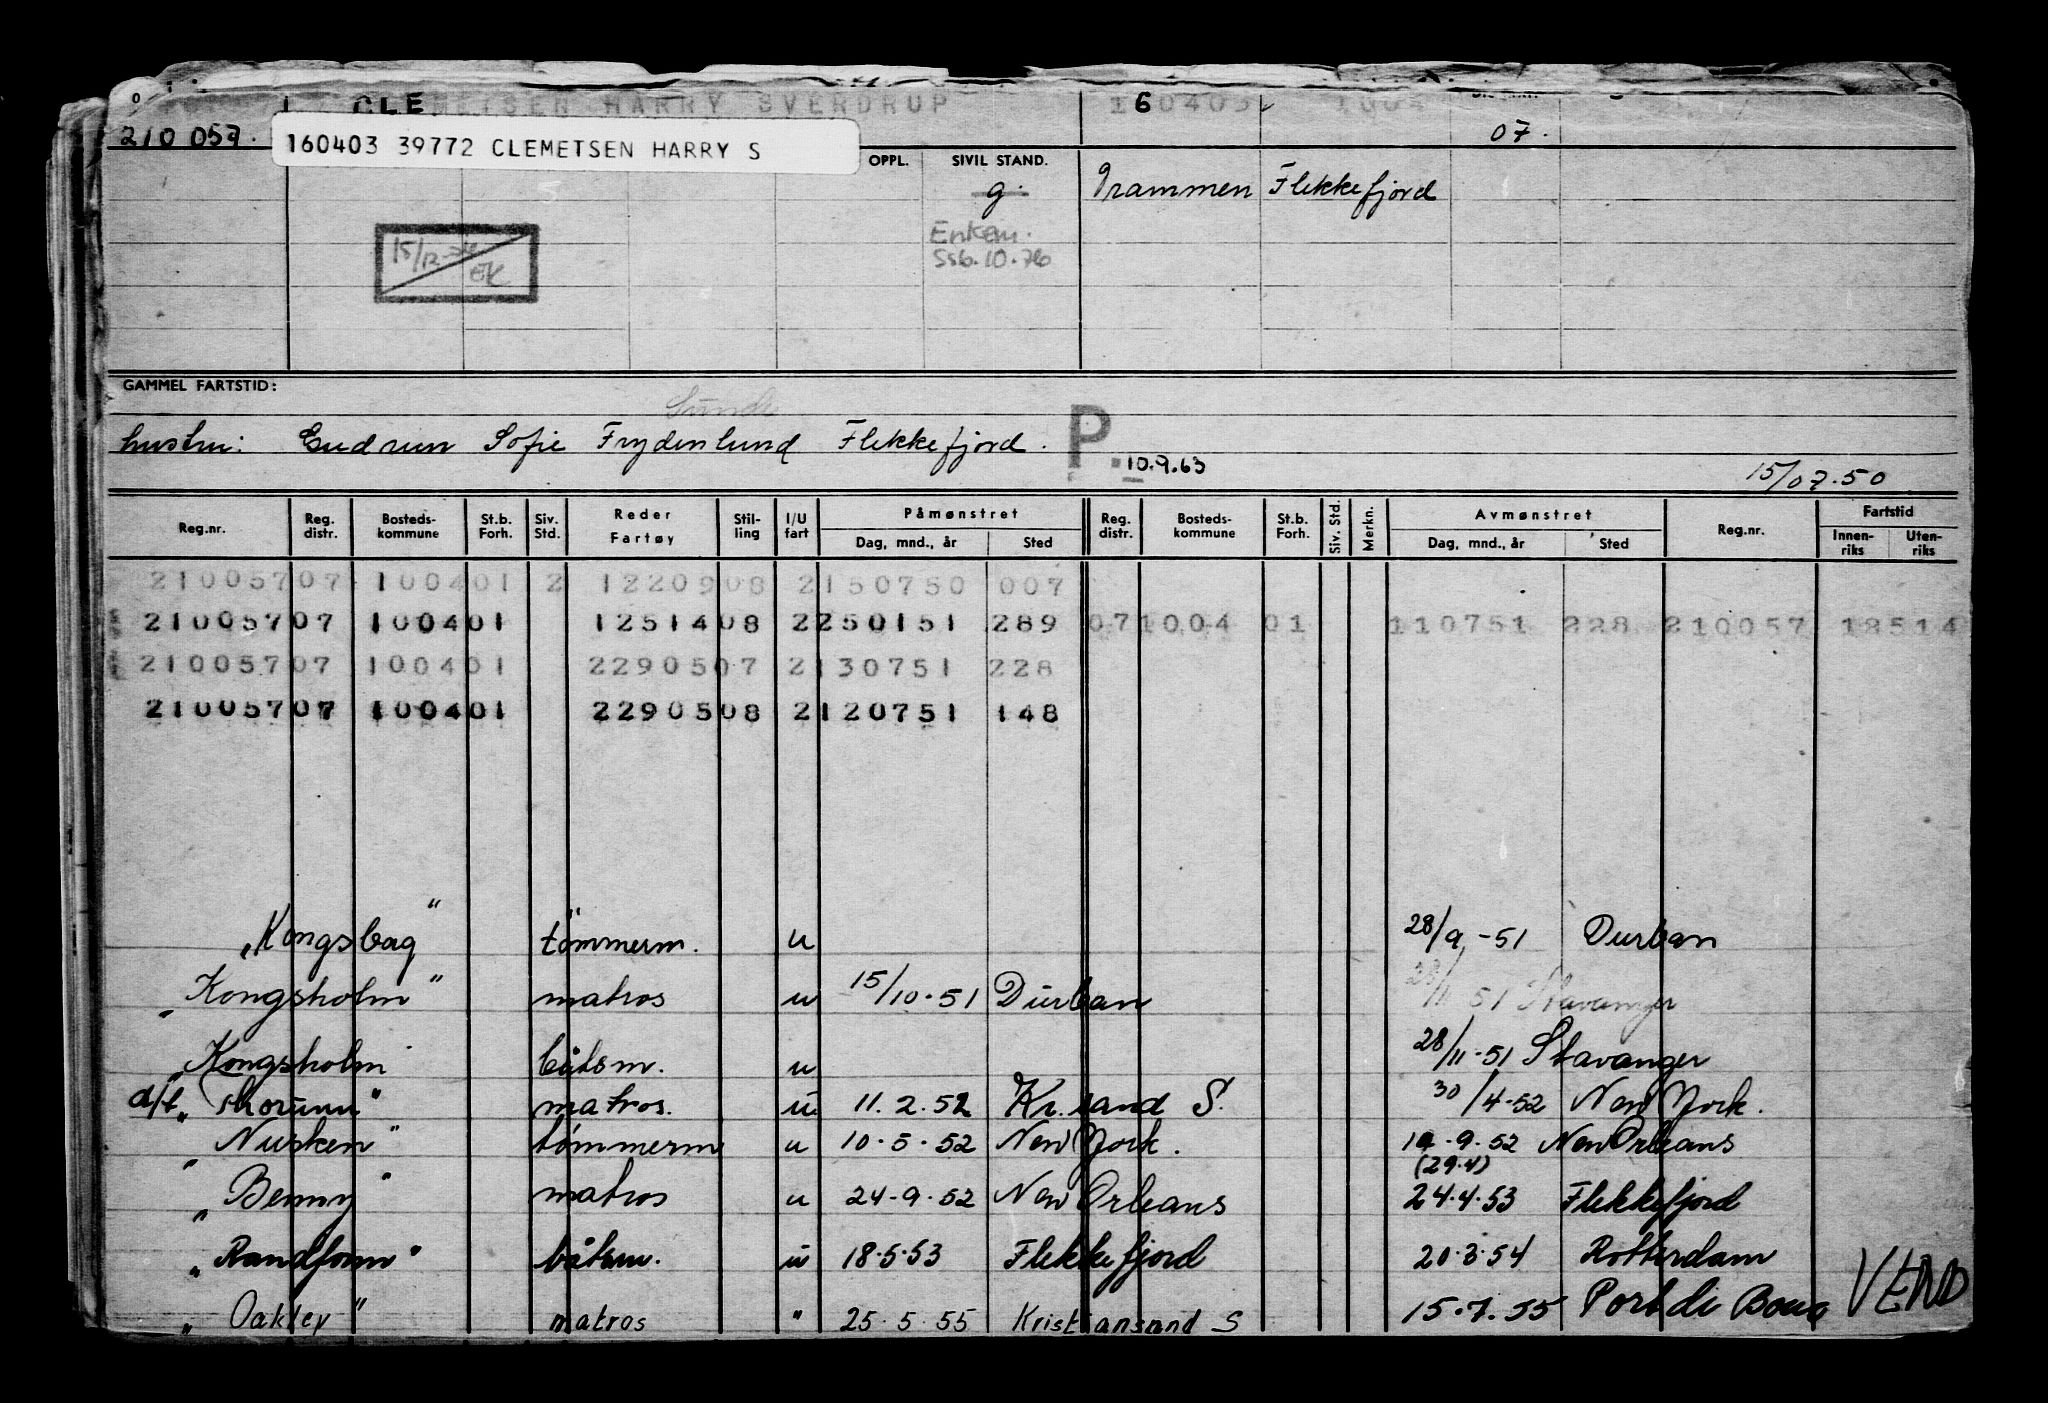 CLEMETSEN HARRY SVERDRUP 160403 1004
210 057. 07.
160403 39772 CLEMETSEN HARRY S
OPPL. SIVIL STAND.
g. Drammen Flekkefjord
Enkem.
Ssb.10.76
15/12-74
EK
GAMMEL FARTSTID:
Sunde
hustru: Gudrun Sofie Frydenlund Flekkefjord.
P.
10.9.63
15/07.50
Reg.nr. Reg. distr. Bosteds- kommune St.b. Forh. Siv. Std. Reder Fartøy Stil- ling I/U fart Påmønstret Dag, mnd., år Sted Reg. distr. Bosteds- kommune St.b. Forh. Siv. Std. Merkn. Avmønstret Dag, mnd., år Sted Reg.nr. Fartstid Innen- riks Uten- riks
21005707 100401 2 1220908 2150750 007
21005707 100401 1251408 2250151 289 071004 01 110751 228 210057 12514
21005707 100401 2290507 2130751 228
21005707 100401 2290508 2120751 148
"Kongsbag" tömmerm. u 28/9-51 Durban
"Kongsholm" matros u 15/10-51 Durban 28/11 51 Stavanger
"Kongsholm båtsm. u 28/11-51 Stavanger
d/t "Thorunn" matros. u 11.2.52 Kr.sand S. 30/4-52 New York.
"Nusken" tømmerm u 10-5-52 New York. 10-9.52 New Orleans
(29.4)
"Benny" matros u 24-9-52 New Orleans 24.4.53 Flekkefjord
"Randfonn" båtsm. u 18.5.53 Flekkefjord 20.3.54 Rotterdam
"Oakley" matros " 25.5.55 Kristiansand S 15.7.55 Port de Bouc
VEND